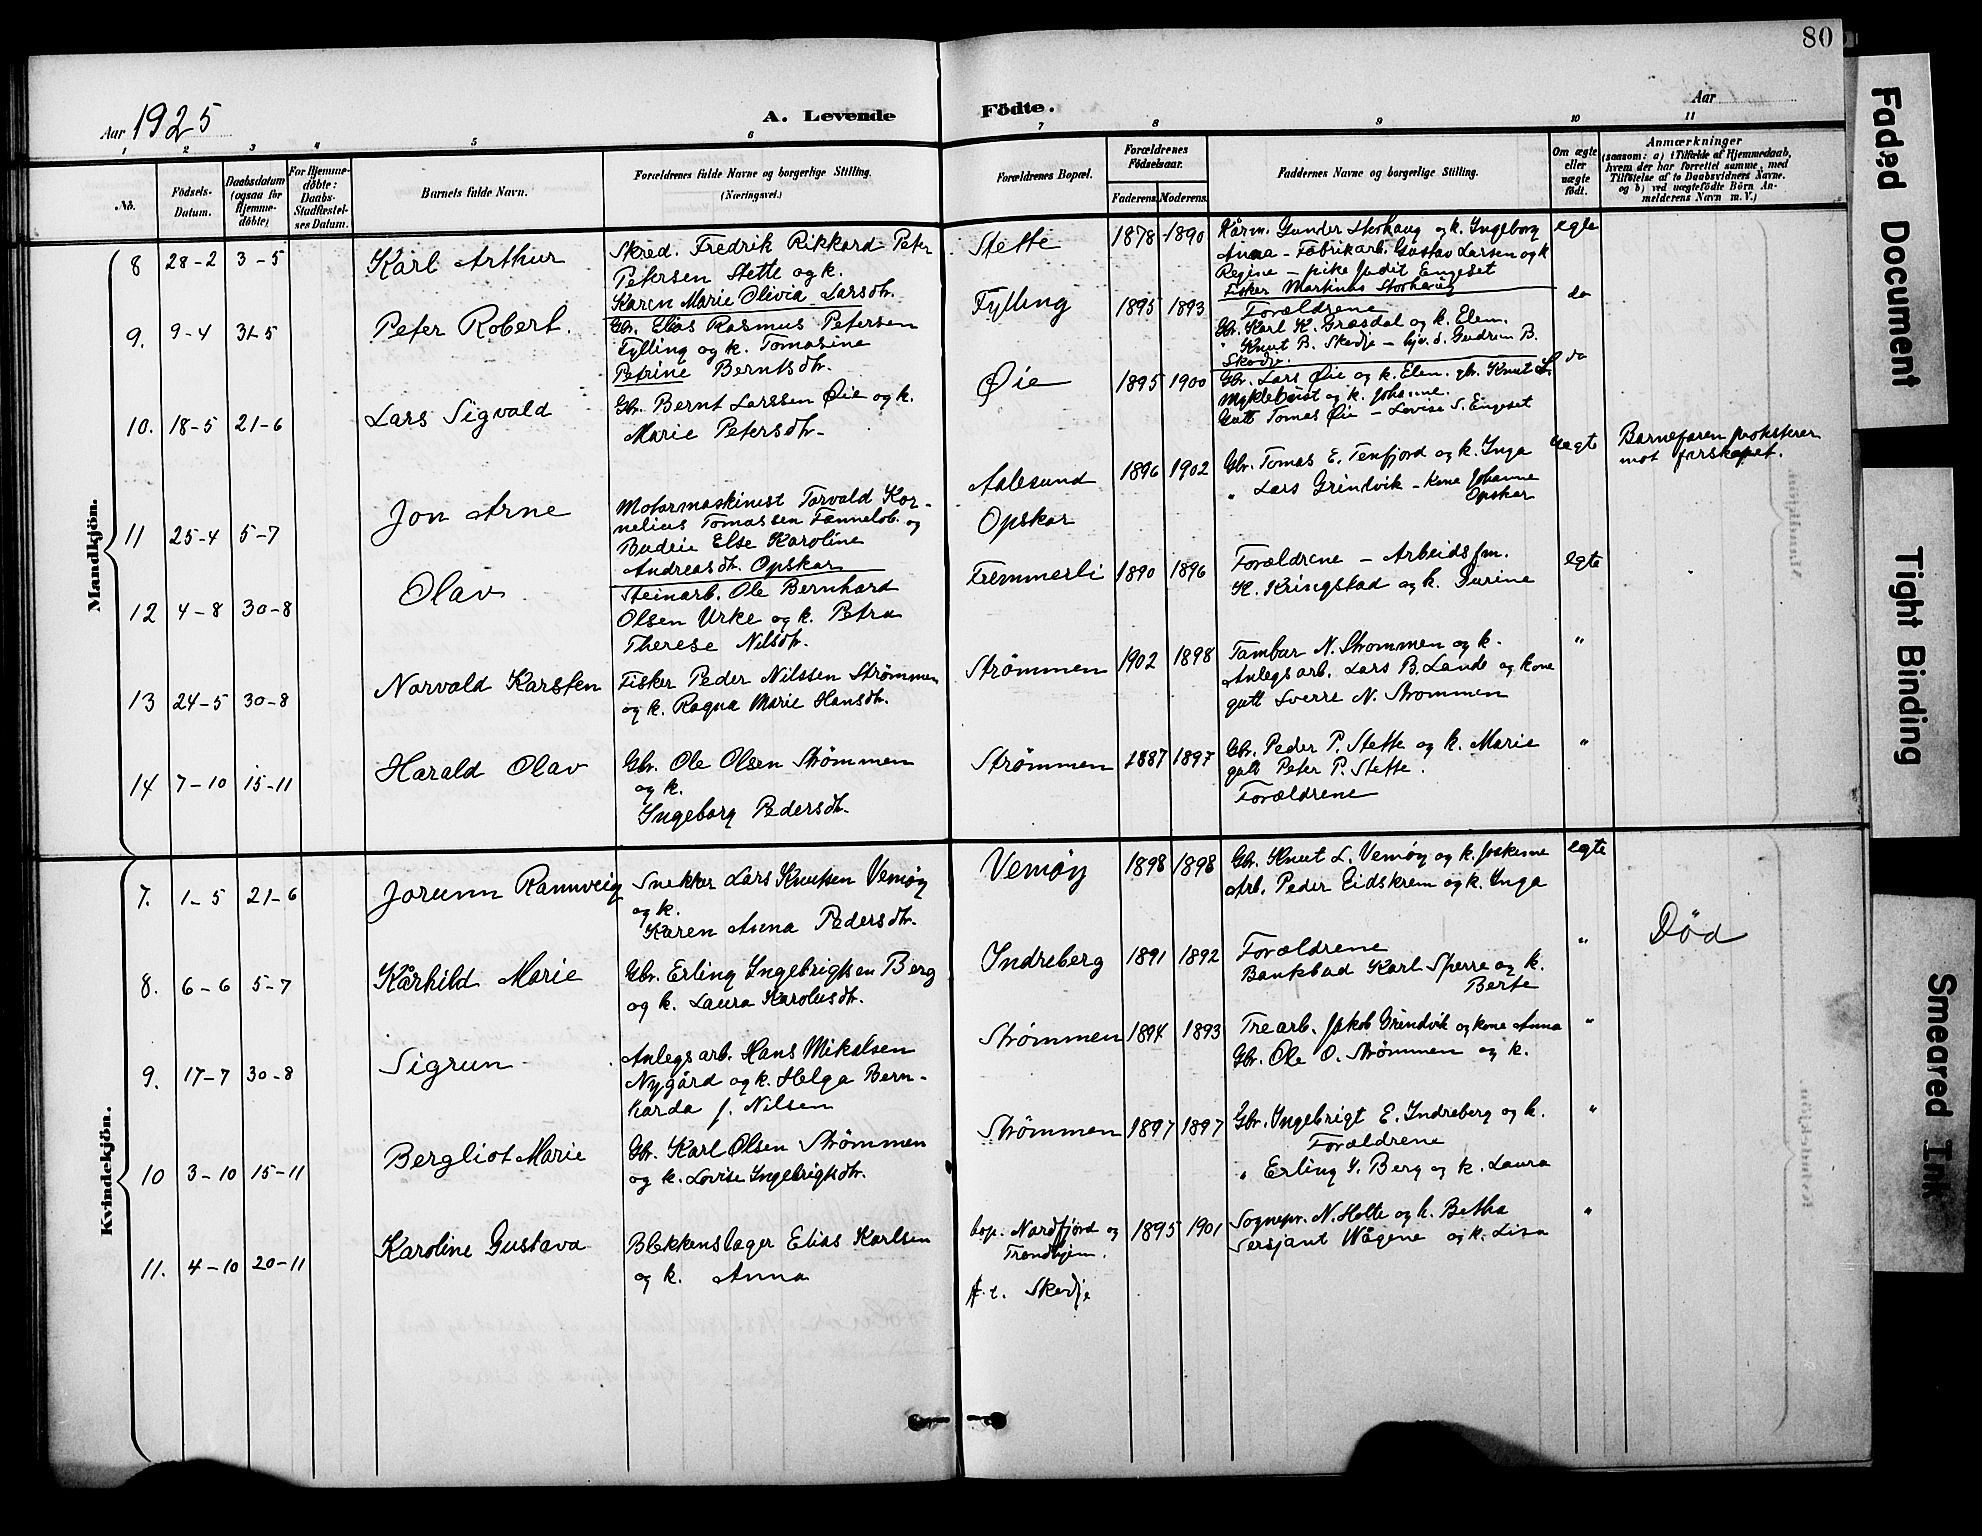 80
Aar 1925
A. Levende Födte.
Aar
1 2 3 4 5 6 7 8 9 10 11
No.
Födsels-Datum.
Daabsdatum (ogsaa for Hjemme-döbte)
For Hjemme-döbte: Daabs-Stadfæstel-ses Datum.
Barnets fulde Navn.
Forældrenes fulde Navne og borgerlige Stilling.
(Næringsvei.)
Forældrenes Bopæl.
Forældrenes Födselsaar.
Faderens. Moderens.
Faddernes Navne og borgerlige Stilling.
Om ægte eller uægte födt.
Anmærkninger
(saasom: a) i Tilfælde af Hjemmedaab, hvem der har forrettet samme, med Tilföielse af to Daabsvidners Navne. og b) ved uægtefödte Börn An-melderens Navn m. V.)
Mandkjön.
8 28-2 3-5 Karl Arthur
Skred. Fredrik Rikkard Peter
Petersen Stette og k.
Karen Marie Olivia Larsdtr.
Stette 1878 1890
Gunder Storhaug og k. Ingeborg
Anna - Fabrikarb. Gustav Larsen og k
Regine - pike Judit Engeset
Fisker Martinus Storhaug
egte
9. 9-4 31-5 Peter Robert.
Gbr. Elias Rasmus Petersen
Fylling og k. Tomasine
Petrine Berntsdtr.
Fylling 1895 1893
Forældrene
Gbr. Karl K. Græsdal og k. Elen.
" Knut B. Skodje - hjv. d. Gudrun B.
Skodje.
do
10. 18-5 21-6 Lars Sigvald
Gbr. Bernt Larssen Øie og k.
Marie Petersdtr.
Øie 1895 1900
Gbr. Lars Øie og k. Elen. gbr. Knut L.
Myklebust og k. Johanne.
Gutt Tomas Øie - Lovise S. Engeset
do
11 25-4 5-7 Jon Arne
Motormaskinist Torvald Kor-
nelius Tomassen Fannelob. og
Budeie Else Karoline
Andreasdtr. Opskar
Aalesund
Opskar
1896 1902
Gbr. Tomas E. Tenfjord og k. Inga
" Lars Grindvik - kone Johanne
Opskar
uegte
Barnefaren protesterer
mot farskapet.
12 4-8 30-8 Olav
Steinarb. Ole Bernhard
Olsen Urke og k. Petra
Therese Nilsdtr.
Fremmerli 1890 1896
Forældrene - Arbeidsfm.
K. Kringstad og k. Jurine
egte
13 24-5 30-8 Norvald Karsten
Fisker Peder Nilssen Strømmen
og k. Ragna Marie Hansdtr.
Strømmen 1902 1898
Tambar N. Strommen og k.
Anlegsarb. Lars B. Lande og kone
gutt Sverre N. Strommen
"
14 7-10 15-11 Harald Olav
Gbr. Ole Olsen Strømmen
og k.
Ingeborg Pedersdtr.
Strømmen 1887 1897
Gbr. Peder P. Stette og k. Marie
gutt Peter P. Stette.
Forældrene
"
Kvindekjön.
7. 1-5 21-6 Jorunn Rannveig
Snekker Lars Knutsen Vemøy
og k.
Karen Anna Pedersdtr.
Vemøy 1898 1898
Gbr. Knut L. Vemøy og k. Joakime
Arb. Peder Eidskrem og k. Inga
egte
8. 6-6 5-7 Kårhild Marie
Gbr. Erling Ingebrigtsen Berg
og k. Laura Karolusdtr.
Indreberg 1891 1892
Forældrene
Bankbud Karl Sperre og k.
Berte
"
Død
9. 17-7 30-8 Sigrun
Anlegsarb. Hans Mikalsen
Nygård og k. Helga Bern-
harda f. Nilsen
Strømmen 1894 1893
Trearb. Jakob Grindvik og kone Anna
Gbr. Ole O. Strømmen og k.
"
10 3-10 15-11 Bergliot Marie
Gbr. Karl Olsen Strømmen
og k. Lovise Ingebrigtsdtr.
Strømmen 1897 1897
Gbr. Ingebrigt E. Indreberg og k.
Forældrene
" Erling I. Berg og k. Laura
"
11. 4-10 20-11 Karoline Gustava
Blekkenslager Elias Karlsen
og k. Anna
bop. Nordfjord og
Trondhjem.
f. t. Skodje
1895 1901
Sognepr. N. Holte og h. Betha
Sersjant Wågene og k. Lisa
"
Faded Document
Tight Binding
Smeared Ink